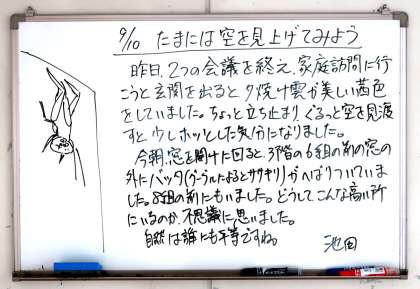 9/10 たまには空を見上げてみよう
昨日、2つの会議を終え、家庭訪問に行
こうと玄関を出ると夕焼け雲が美しい茜色
をしていました。ちょっと立ち止まり、ぐるっと空を見渡
すと、少しホッとした気分になりました。
今朝、窓を開けに回ると、3階の6組の前の窓の
外にバッタ(グーグルによるとササキリ)がへばりついていま
した。8組の前にもいました。どうしてこんな高い所
にいるのか、不思議に思いました。
自然は誰にも平等ですね。
池田